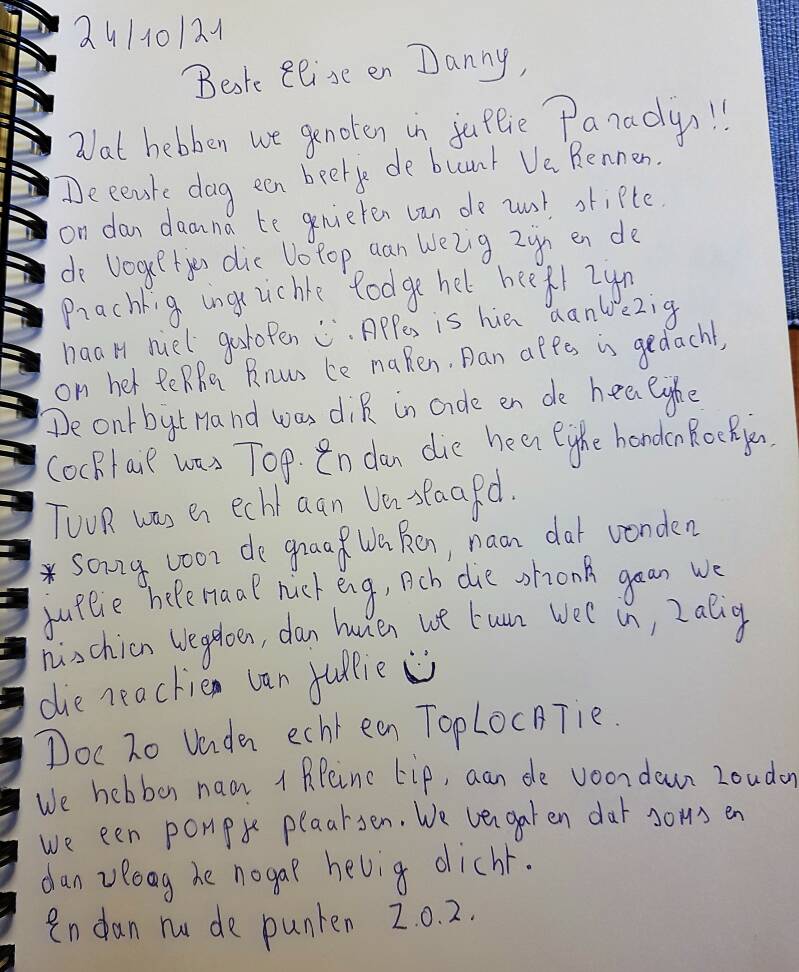 24/10/21
Beste Elise en Danny,
Wat hebben we genoten in jullie Paradijs!!
De eerste dag een beetje de buurt Verkennen.
on dan daarna te genieten van de rust, stilte.
de Vogeltjes die Volop aanwezig zijn en de
Prachtig ingerichte lodge het heeft zijn
naam niet gestolen :). Alles is hier aanwezig
om het lekker knus te maken. Aan alles is gedacht,
De ontbijtmand was dik in orde en de heerlijke
Cocktail was Top. En dan die heerlijke hondenkoekjes.
TUUR was er echt aan Verslaafd.
* Sorry voor de graafwerken, maar dat vonden
jullie helemaal niet erg, Ach die stronk gaan we
misschien wegdoen, dan huren we tuur wel in, Zalig
die reacties van jullie :)
Doe zo Verder echt een TopLOCATIe.
We hebben maar 1 kleine tip, aan de voordeur zouden
we een pompje plaatsen. We vergaten dat soms en
dan vloog ze nogal hevig dicht.
En dan nu de punten Z.O.Z.